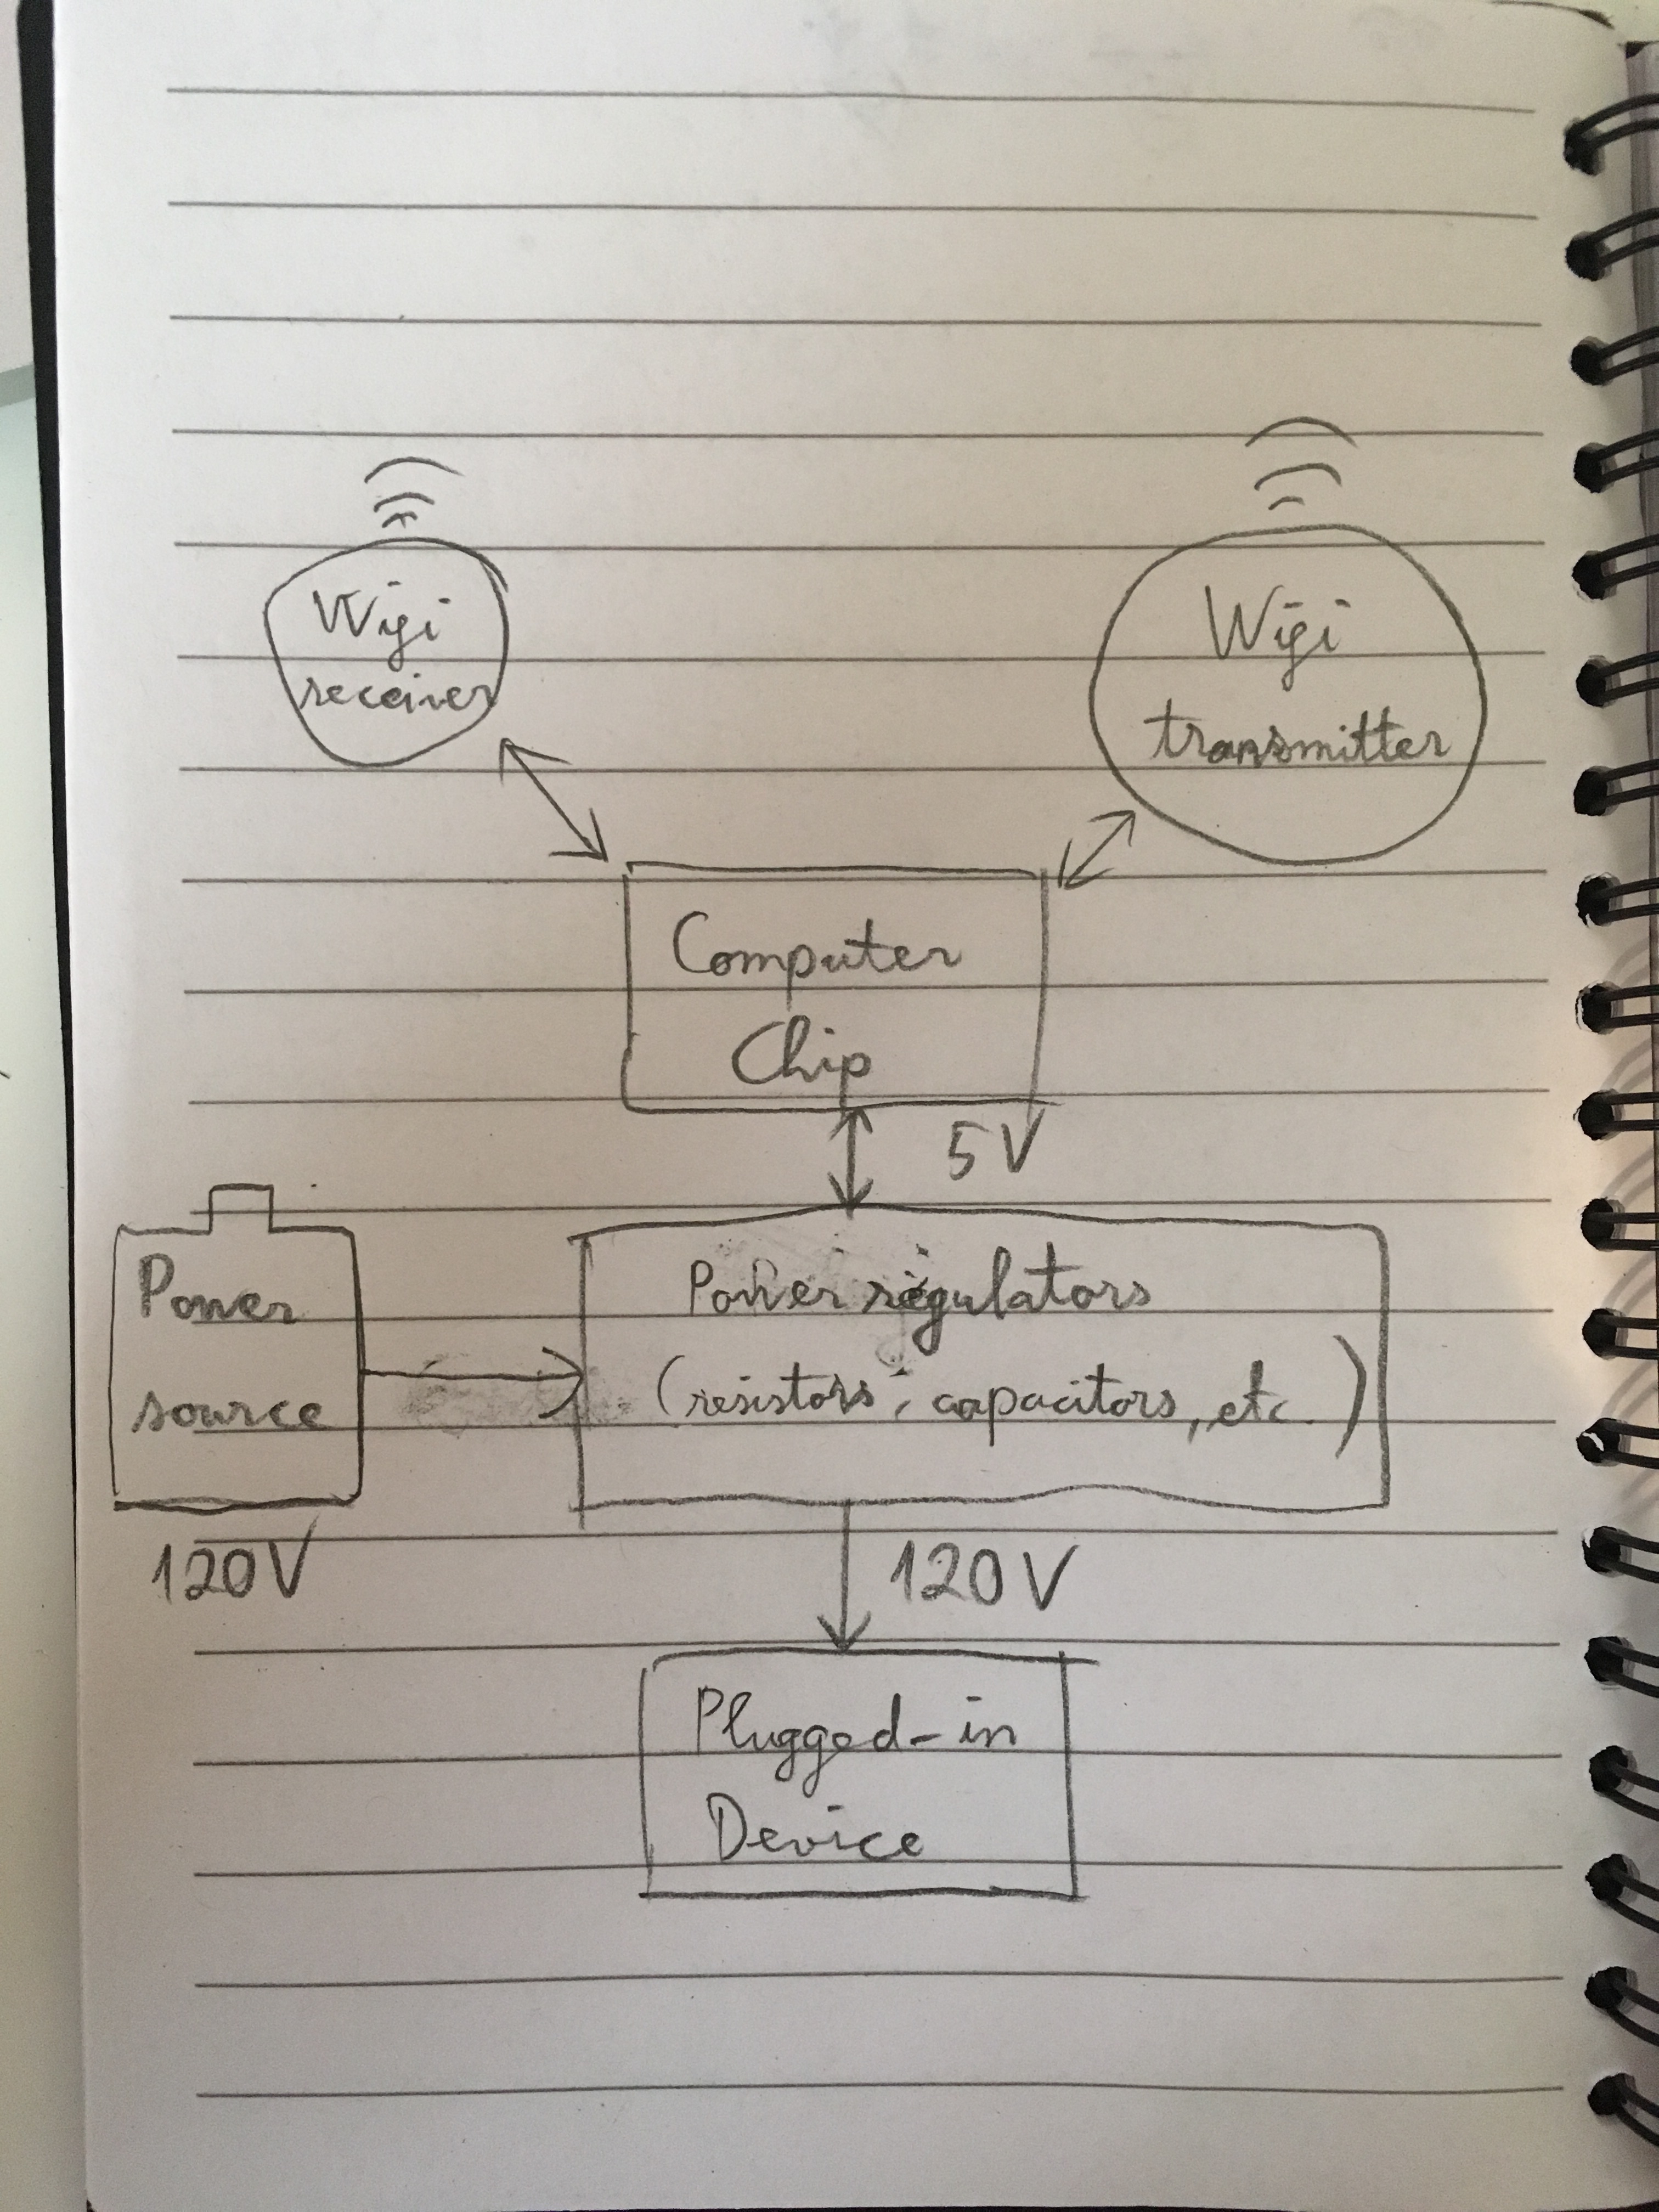 Wifi
receiver
Wifi
transmitter
Computer
Chip
5V
Power
source
Power regulators
(resistors, capacitors, etc.)
120V
120V
Plugged-in
Device